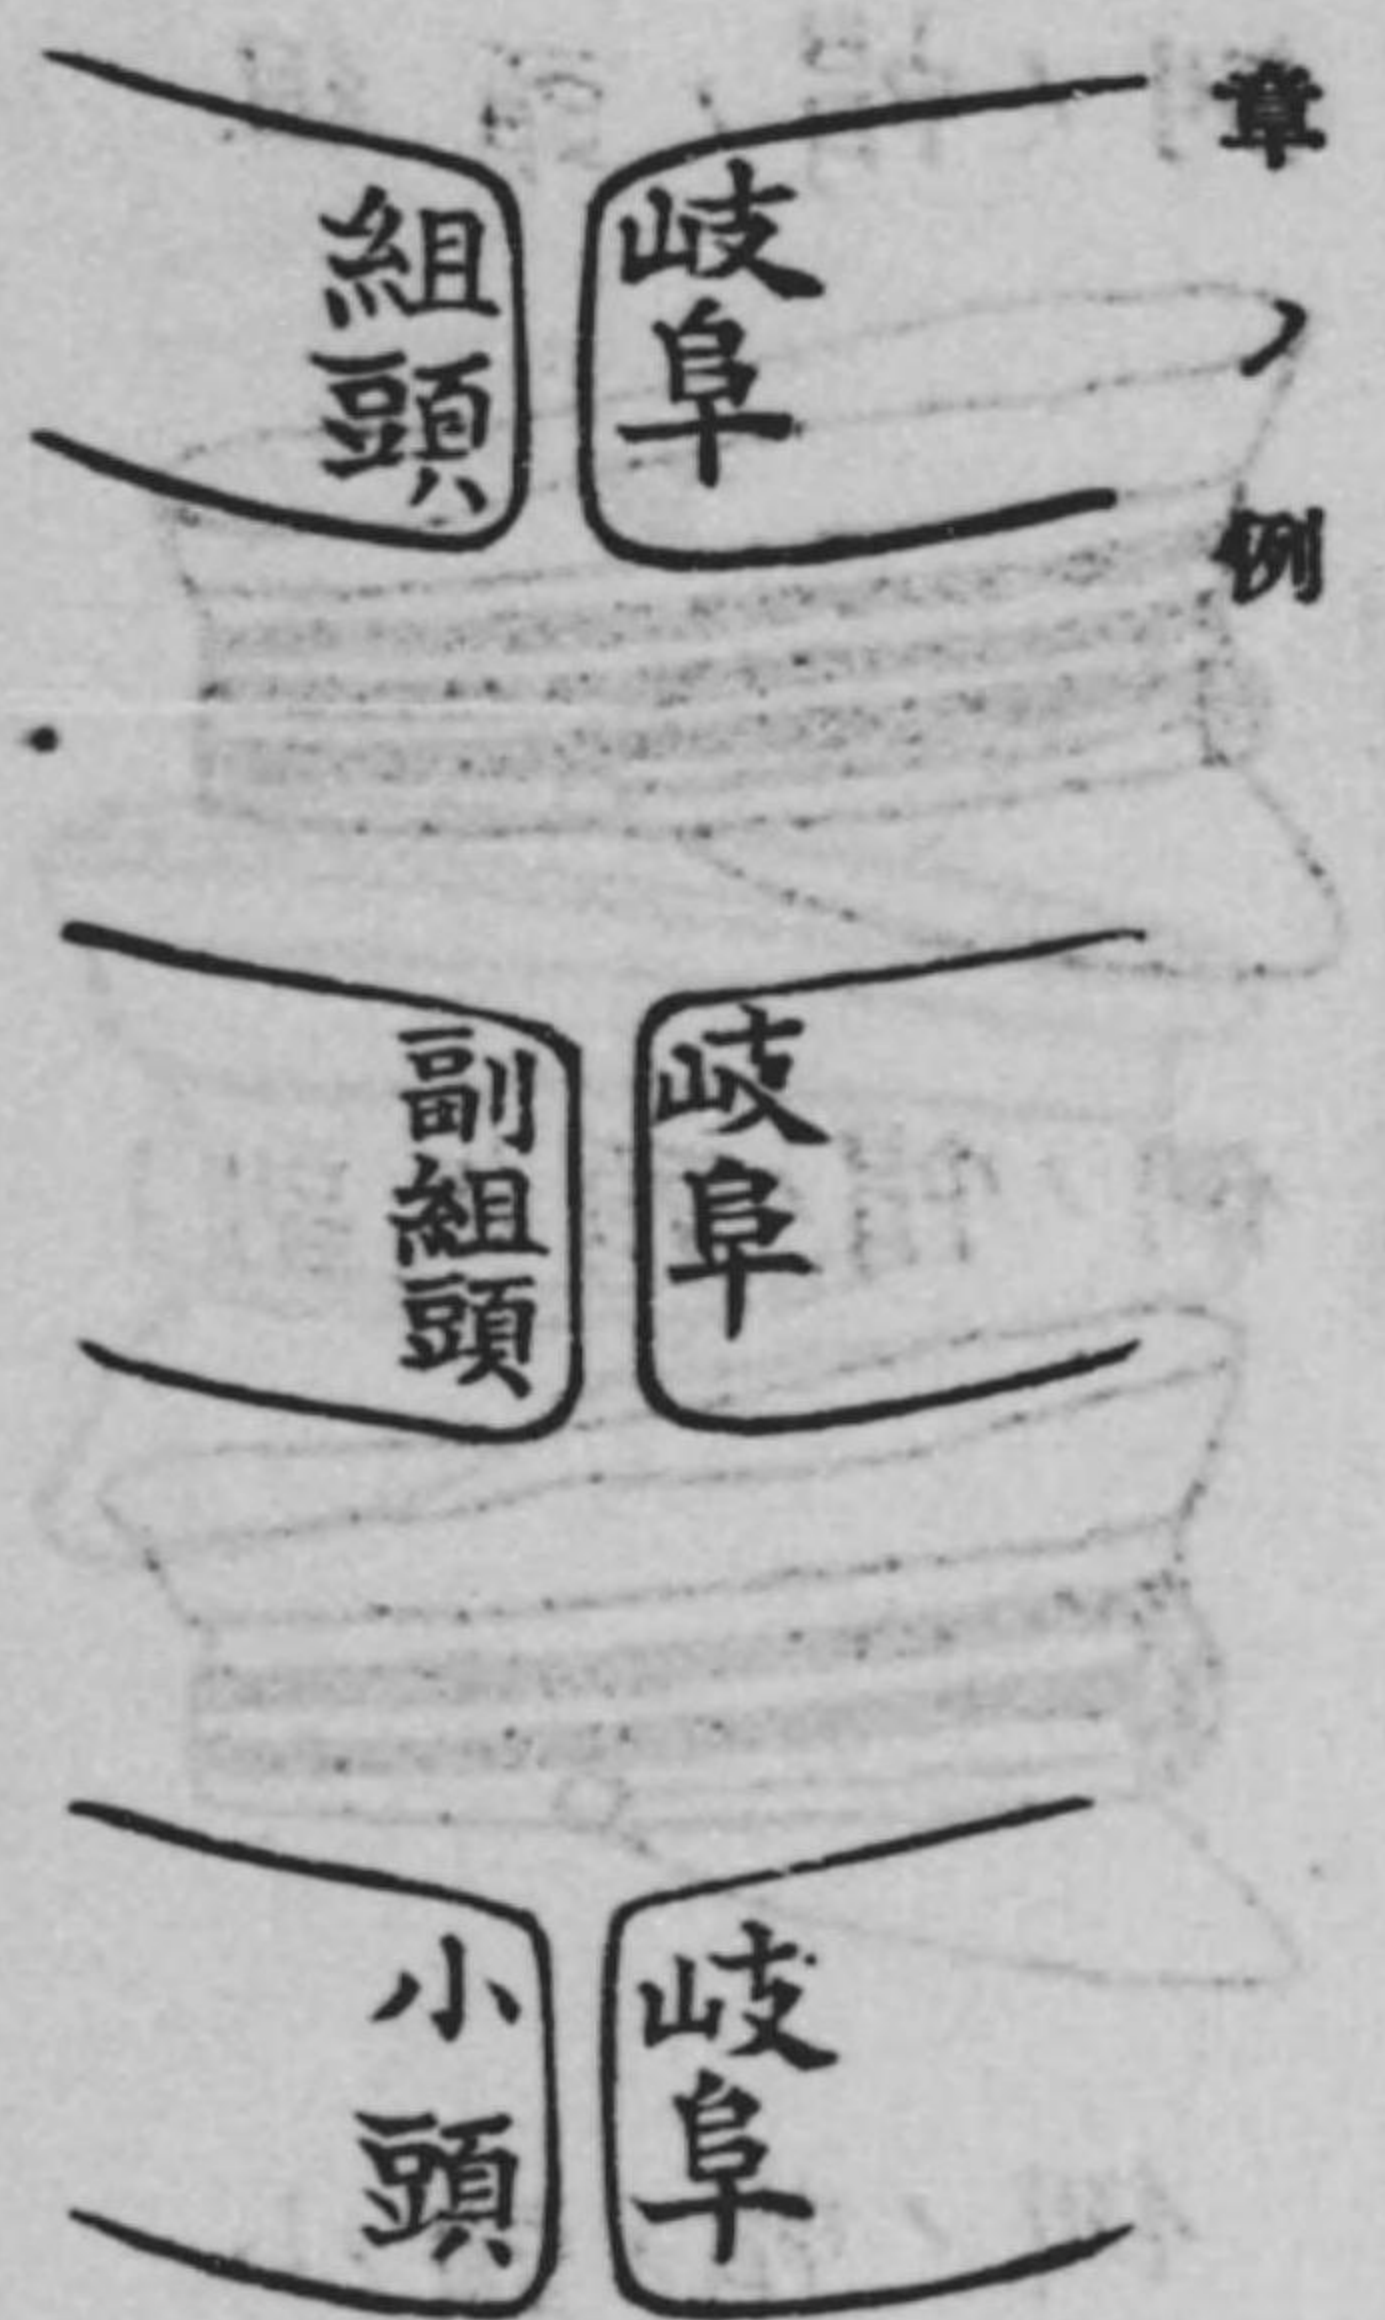 章ノ例
岐阜
組頭
岐阜
副組頭
岐阜
小頭